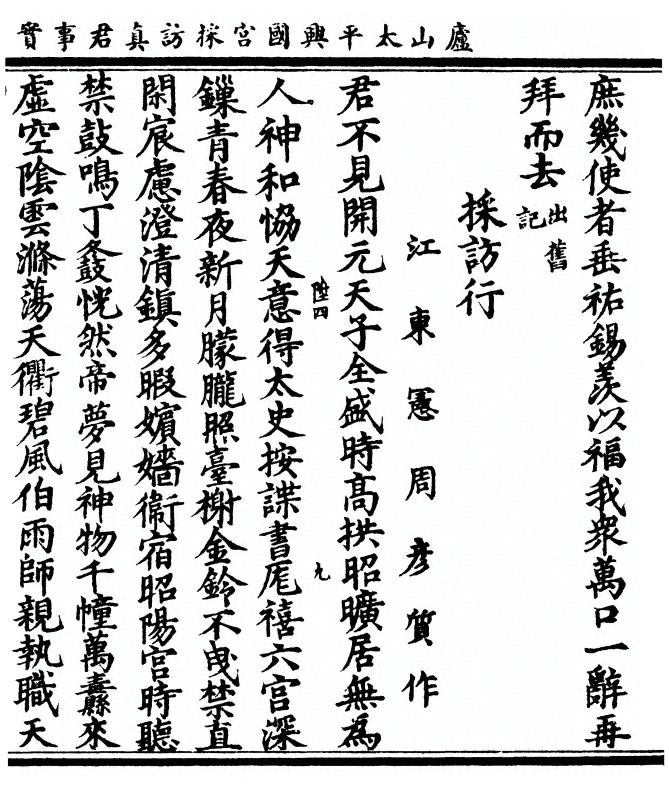 廬山太平興國宮採訪真君事實
庶幾使者垂祐錫羨以福我衆萬口一辭再
拜而去出舊記
採訪行
江東憲周彥質作
君不見開元天子全盛時高拱昭曠居無為
人神和協天意得太史按諜書厖禧六宮深
鏁青春夜新月朦朧照臺榭金鈴不曳禁直
閑宸慮澄清鎮多暇嬪嬙衞宿昭陽宮時聽
禁鼓鳴丁冬鼓恍然帝夢見神物千幢萬纛來
虛空陰雲滌蕩天衢碧風伯雨師親執職天
陞四
九